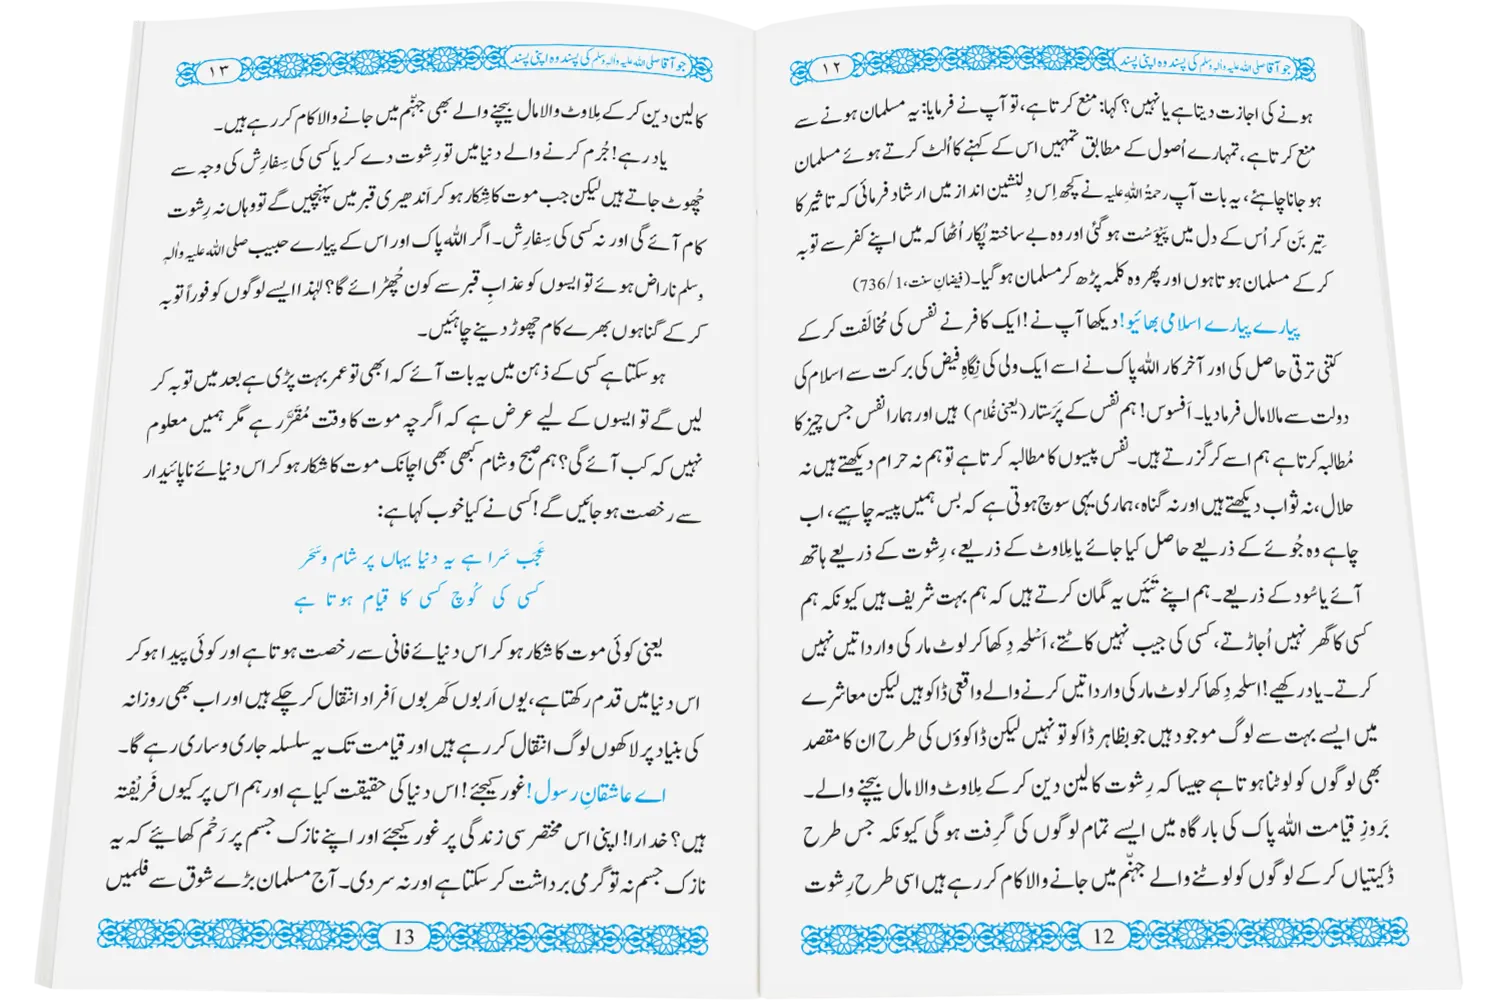 جو آقا صلی اللہ علیہ واٰلہٖ وسلم کی پسند وہ اپنی پسند
۱۲
ہونے کی اجازت دیتا ہے یا نہیں؟ کہا: منع کرتا ہے، تو آپ نے فرمایا: یہ مسلمان ہونے سے
منع کرتا ہے، تمہارے اُصول کے مطابق تمہیں اس کے کہنے کا اُلٹ کرتے ہوئے مسلمان
ہو جانا چاہئے، یہ بات آپ رحمۃُ اللہِ علیہ نے کچھ اِس دِلنشین انداز میں ارشاد فرمائی کہ تاثیر کا
تِیر بَن کر اُس کے دل میں پَیْوَسْت ہو گئی اور وہ بے ساختہ پُکار اُٹھا کہ میں اپنے کفر سے توبہ
کر کے مسلمان ہوتا ہوں اور پھر وہ کلمہ پڑھ کر مسلمان ہو گیا۔ (فیضانِ سنت، 1/736)
پیارے پیارے اسلامی بھائیو! دیکھا آپ نے! ایک کافر نے نفس کی مُخالَفت کر کے
کتنی ترقی حاصل کی اور آخرِ کار اللہ پاک نے اسے ایک ولی کی نِگاہِ فیض کی برکت سے اسلام کی
دولت سے مالا مال فرما دیا۔ اَفسوس! ہم نفس کے پَرَستار (یعنی غُلام) ہیں اور ہمارا نفس جس چیز کا
مُطالبہ کرتا ہے ہم اسے کر گزرتے ہیں۔ نفس پیسوں کا مطالبہ کرتا ہے تو ہم نہ حرام دیکھتے ہیں نہ
حلال، نہ ثواب دیکھتے ہیں اور نہ گناہ، ہماری یہی سوچ ہوتی ہے کہ بس ہمیں پیسہ چاہیے، اب
چاہے وہ جُوئے کے ذریعے حاصل کیا جائے یا مِلاوٹ کے ذریعے، رِشوت کے ذریعے ہاتھ
آئے یا سُود کے ذریعے۔ ہم اپنے تَئیں یہ گمان کرتے ہیں کہ ہم بہت شریف ہیں کیونکہ ہم
کسی کا گھر نہیں اُجاڑتے، کسی کی جیب نہیں کاٹتے، اَسْلحہ دِکھا کر لوٹ مار کی وارداتیں نہیں
کرتے۔ یاد رکھیے! اسلحہ دِکھا کر لوٹ مار کی وارداتیں کرنے والے واقعی ڈاکو ہیں لیکن معاشرے
میں ایسے بہت سے لوگ موجود ہیں جو بظاہر ڈاکو تو نہیں لیکن ڈاکوؤں کی طرح ان کا مقصد
بھی لوگوں کو لوٹنا ہوتا ہے جیسا کہ رِشوت کا لین دین کر کے مِلاوٹ والا مال بیچنے والے۔
بَروزِ قیامت اللہ پاک کی بارگاہ میں ایسے تمام لوگوں کی گِرفت ہو گی کیونکہ جس طرح
ڈکیتیاں کر کے لوگوں کو لوٹنے والے جہنّم میں جانے والا کام کر رہے ہیں اسی طرح رِشوت
12
جو آقا صلی اللہ علیہ واٰلہٖ وسلم کی پسند وہ اپنی پسند
۱۳
کا لین دین کر کے مِلاوٹ والا مال بیچنے والے بھی جہنّم میں جانے والا کام کر رہے ہیں۔
یاد رہے! جُرم کرنے والے دنیا میں تو رِشوت دے کر یا کسی کی سِفارِش کی وجہ سے
چُھوٹ جاتے ہیں لیکن جب موت کا شِکار ہو کر اَندھیری قبر میں پہنچیں گے تو وہاں نہ رِشوت
کام آئے گی اور نہ کسی کی سِفارِش۔ اگر اللہ پاک اور اس کے پیارے حبیب صلی اللہ علیہ واٰلہٖ
وسلم ناراض ہوئے تو ایسوں کو عذابِ قبر سے کون چُھڑائے گا؟ لہٰذا ایسے لوگوں کو فوراً توبہ
کر کے گناہوں بھرے کام چھوڑ دینے چاہئیں۔
ہو سکتا ہے کسی کے ذہن میں یہ بات آئے کہ ابھی تو عمر بہت پڑی ہے بعد میں توبہ کر
لیں گے تو ایسوں کے لیے عرض ہے کہ اگرچہ موت کا وقت مُقَرَّر ہے مگر ہمیں معلوم
نہیں کہ کب آئے گی؟ ہم صبح و شام کبھی بھی اچانک موت کا شکار ہو کر اس دنیائے ناپائیدار
سے رخصت ہو جائیں گے! کسی نے کیا خوب کہا ہے:
عَجَب سَرا ہے یہ دنیا یہاں پر شام و سَحَر
کسی کی کُوچ کسی کا قیام ہوتا ہے
یعنی کوئی موت کا شکار ہو کر اس دنیائے فانی سے رخصت ہوتا ہے اور کوئی پیدا ہو کر
اس دنیا میں قدم رکھتا ہے، یوں اَربوں کَھربوں اَفراد انتقال کر چکے ہیں اور اب بھی روزانہ
کی بنیاد پر لاکھوں لوگ انتقال کر رہے ہیں اور قیامت تک یہ سلسلہ جاری و ساری رہے گا۔
اے عاشقانِ رسول! غور کیجئے! اس دنیا کی حقیقت کیا ہے اور ہم اس پر کیوں فَرِیفْتہ
ہیں؟ خدارا! اپنی اس مختصر سی زندگی پر غور کیجئے اور اپنے نازک جسم پر رَحْم کھائیے کہ یہ
نازک جسم نہ تو گرمی برداشت کر سکتا ہے اور نہ سردی۔ آج مسلمان بڑے شوق سے فلمیں
13